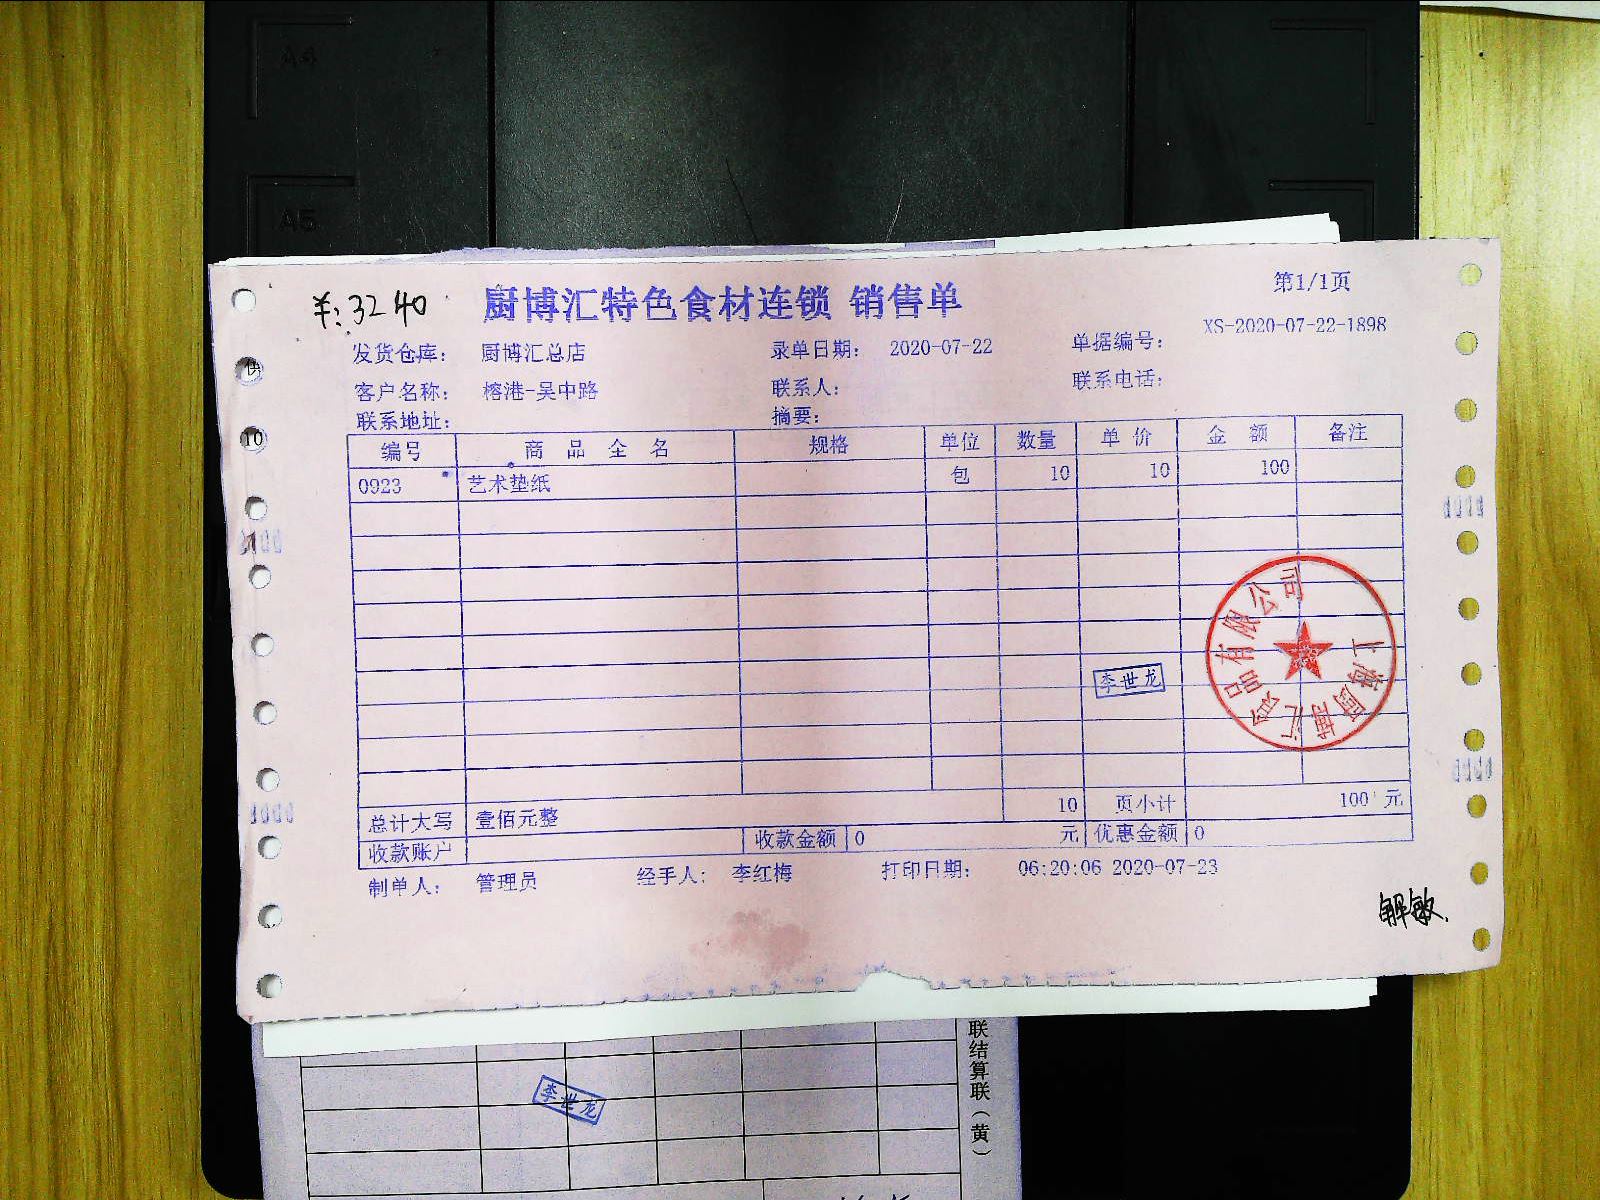 A4
A5
第1/1页
¥: 3240
厨博汇特色食材连锁 销售单
XS-2020-07-22-1898
发货仓库: 厨博汇总店 录单日期: 2020-07-22 单据编号:
客户名称: 榕港-吴中路 联系人: 联系电话:
联系地址: 摘要:
编号 商品全名 规格 单位 数量 单价 金额 备注
0923 艺术垫纸 包 10 10 100
供
10
上海厨博汇食品有限公司
李世龙
总计大写 壹佰元整 10 页小计 100 元
收款账户 收款金额 0 元 优惠金额 0
制单人: 管理员 经手人: 李红梅 打印日期: 06:20:06 2020-07-23
解敏
联结算联(黄)
李世龙